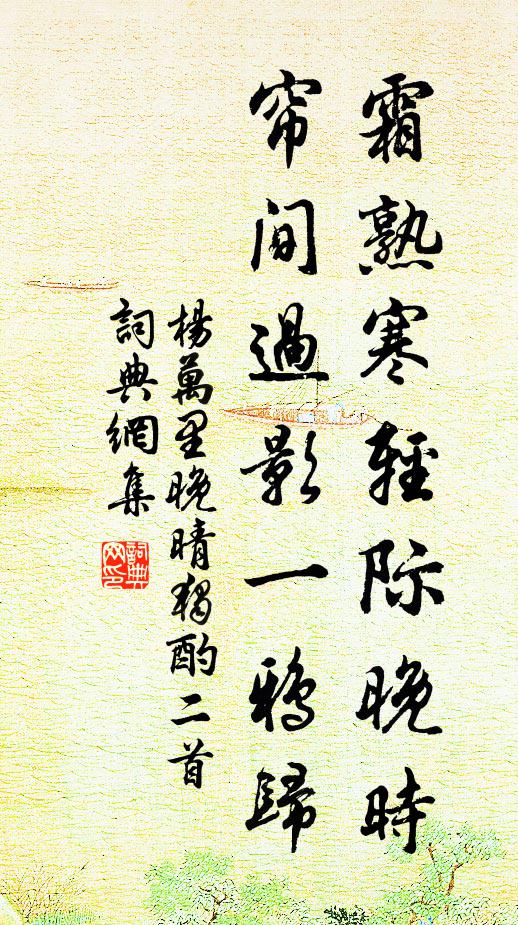 霜熟寒輕际晚時
帘间過影一鴉歸
楊萬里晚晴獨酌二首
詞典網集
詞典网印